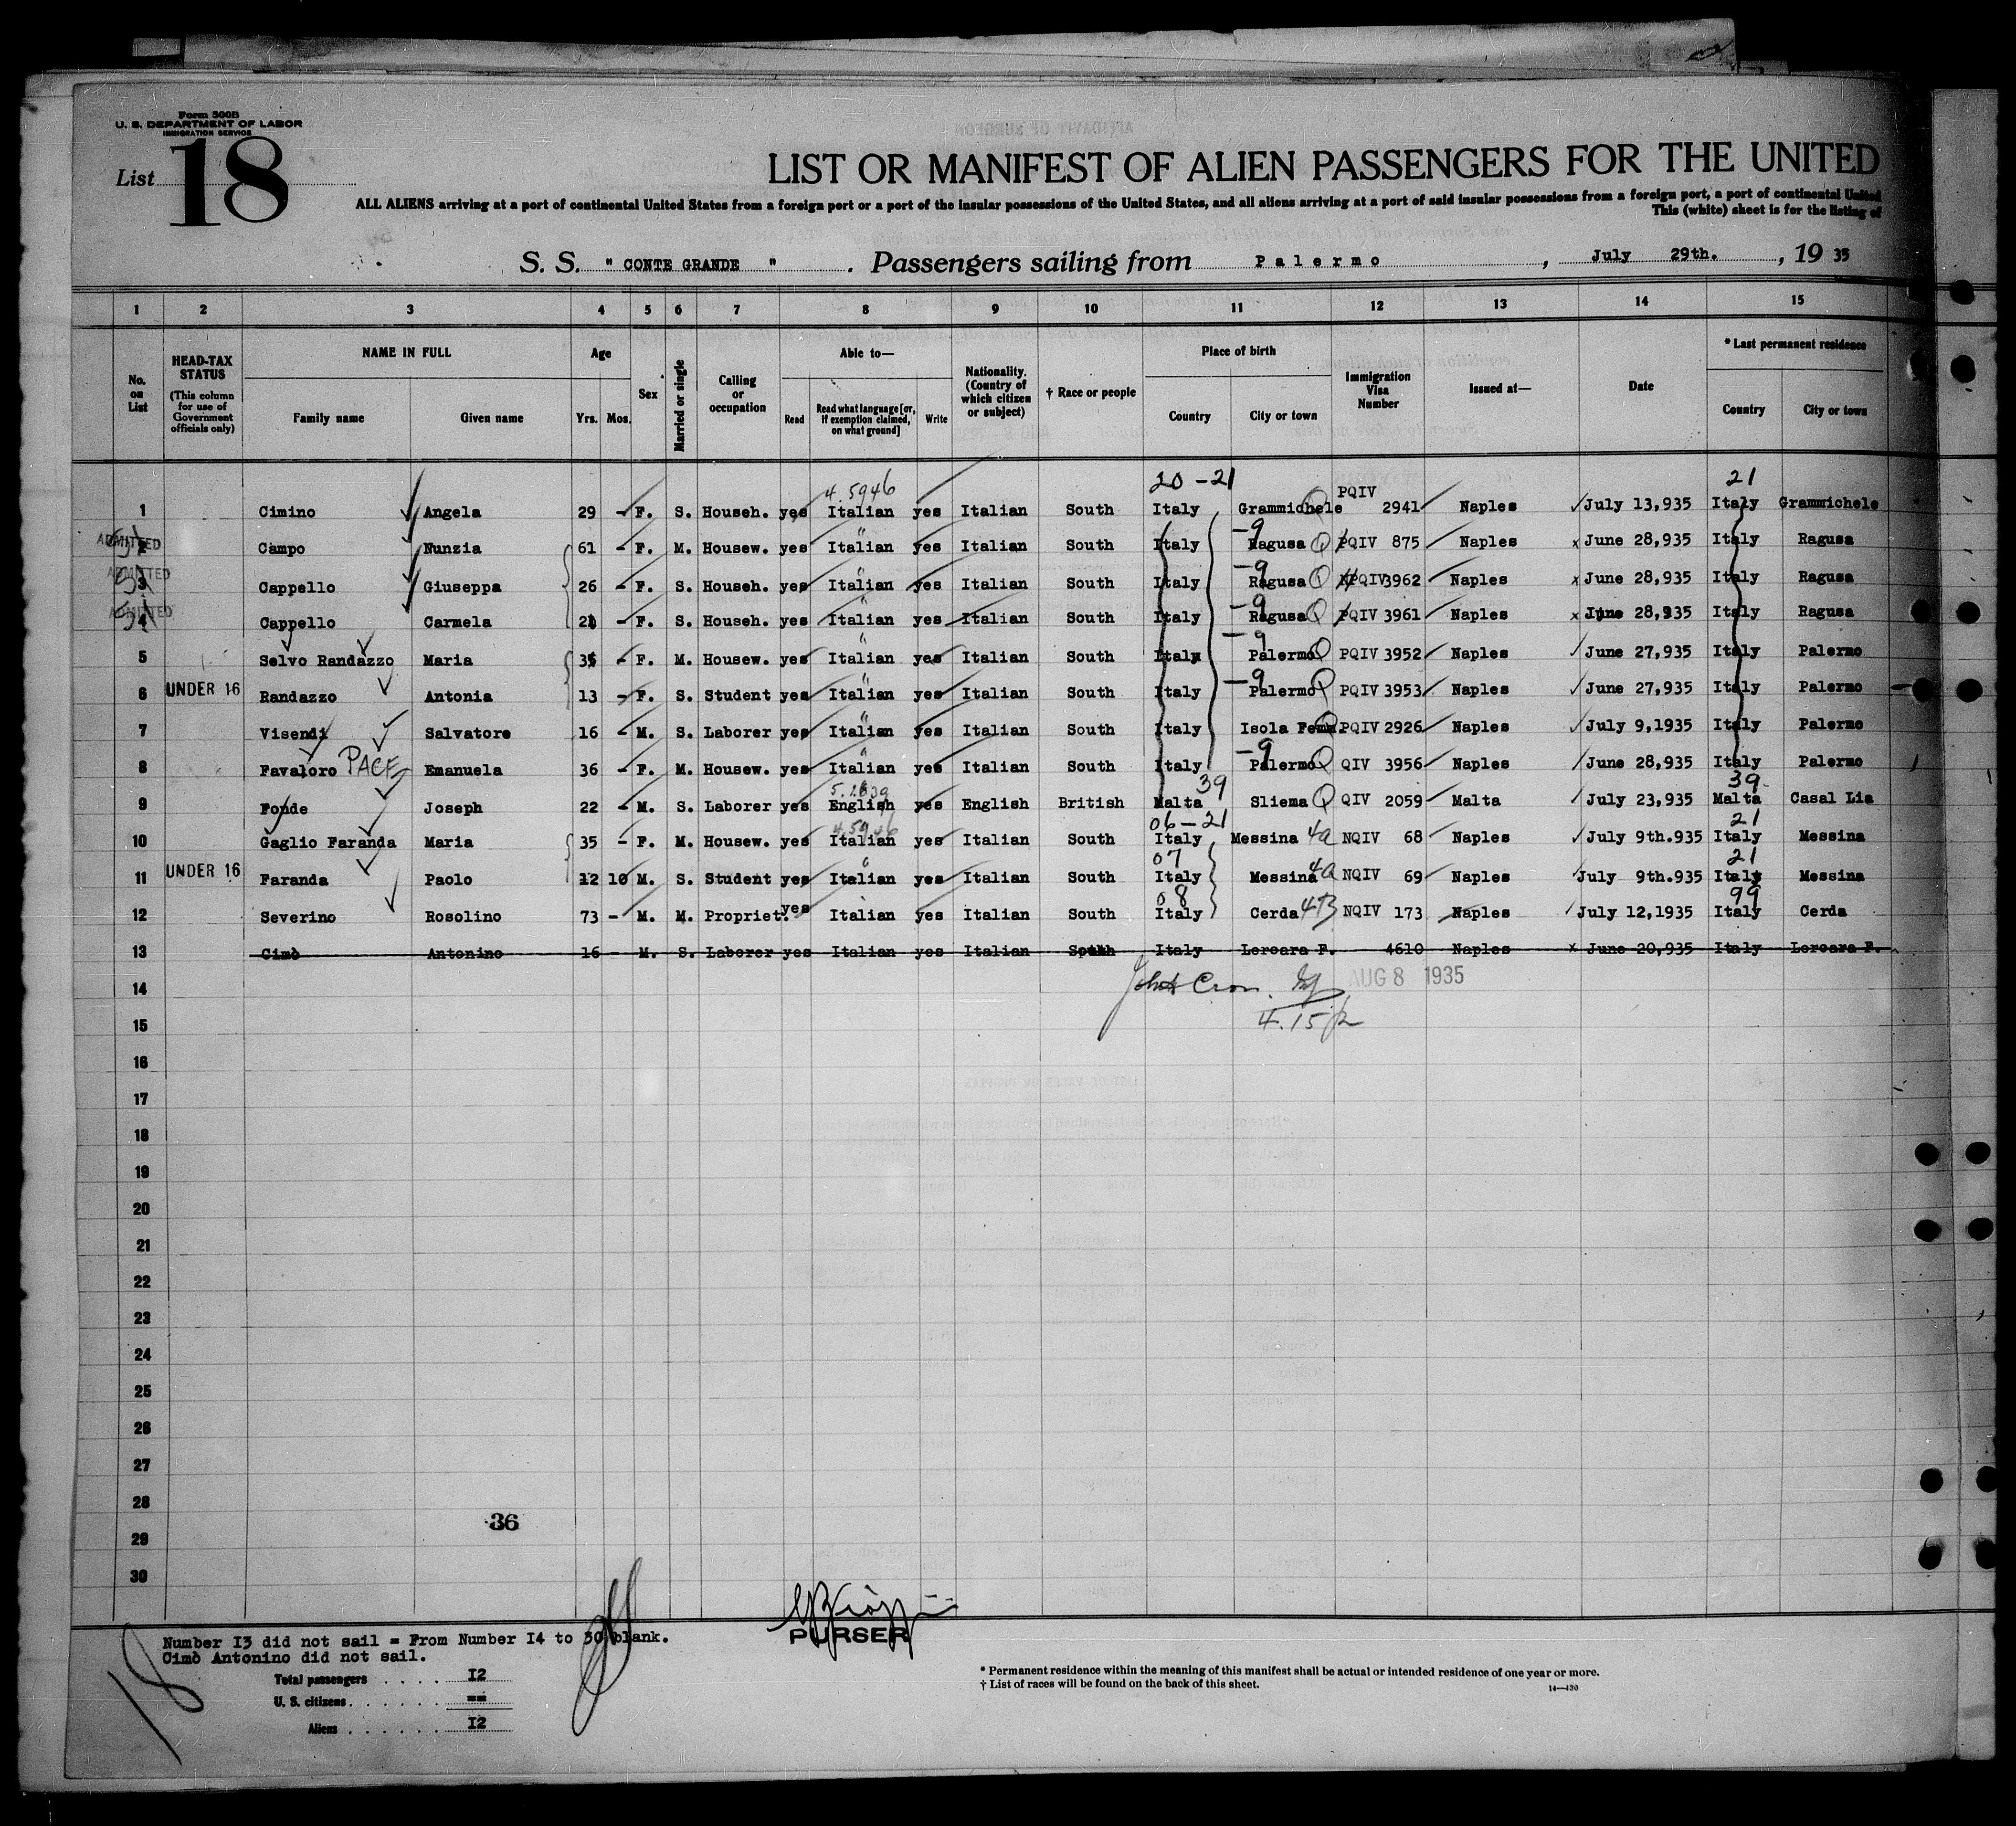 Form 500B
U. S. DEPARTMENT OF LABOR
IMMIGRATION SERVICE
List 18
LIST OR MANIFEST OF ALIEN PASSENGERS FOR THE UNITED
ALL ALIENS arriving at a port of continental United States from a foreign port or a port of the insular possessions of the United States, and all aliens arriving at a port of said insular possessions from a foreign port, a port of continental United
This (white) sheet is for the listing of
S. S. " CONTE GRANDE " . Passengers sailing from Palermo , July 29th. , 19 35
1 2 3 4 5 6 7 8 9 10 11 12 13 14 15
No. on List
HEAD-TAX STATUS (This column for use of Government officials only)
NAME IN FULL Family name Given name
Age Yrs. Mos.
Sex
Married or single
Calling or occupation
Able to— Read Read what language [or, if exemption claimed, on what ground] Write
Nationality. (Country of which citizen or subject)
† Race or people
Place of birth Country City or town
Immigration Visa Number
Issued at—
Date
* Last permanent residence Country City or town
4.5946 20-21 PQIV 21
1 Cimino Angela 29 - F. S. Househ. yes Italian yes Italian South Italy Grammichele 2941 Naples July 13,935 Italy Grammichele
ADMITTED 2 Campo Nunzia 61 - F. M. Housew. yes Italian yes Italian South Italy -9 Ragusa Q PQIV 875 Naples x June 28,935 Italy Ragusa
ADMITTED 3 Cappello Giuseppa 26 - F. S. Househ. yes Italian yes Italian South Italy -9 Ragusa Q PQIV 3962 Naples x June 28,935 Italy Ragusa
ADMITTED 4 Cappello Carmela - F. S. Househ. yes Italian yes Italian South Italy -9 Ragusa Q PQIV 3961 Naples x June 28,935 Italy Ragusa
5 Selvo Randazzo Maria - F. M. Housew. yes Italian yes Italian South Italy -9 Palermo Q PQIV 3952 Naples June 27,935 Italy Palermo
6 UNDER 16 Randazzo Antonia 13 - F. S. Student yes Italian yes Italian South Italy -9 Palermo Q PQIV 3953 Naples June 27,935 Italy Palermo
7 Visendi Salvatore 16 - M. S. Laborer yes Italian yes Italian South Italy Isola Fem. Q PQIV 2926 Naples July 9,1935 Italy Palermo
8 Favaloro PACE Emanuela 36 - F. M. Housew. yes Italian yes Italian South Italy -9 Palermo Q QIV 3956 Naples June 28,935 Italy Palermo
39 39
9 Fonde Joseph 22 - M. S. Laborer yes English yes English British Malta Sliema Q QIV 2059 Malta July 23,935 Malta Casal Lia
4.5946 06-21 21
10 Gaglio Faranda Maria 35 - F. M. Housew. yes Italian yes Italian South Italy Messina 4a NQIV 68 Naples July 9th.935 Italy Messina
07 21
11 UNDER 16 Faranda Paolo 12 10 M. S. Student yes Italian yes Italian South Italy Messina 4a NQIV 69 Naples July 9th.935 Italy Messina
08 99
12 Severino Rosolino 73 - M. M. Propriet. yes Italian yes Italian South Italy Cerda 4B NQIV 173 Naples July 12,1935 Italy Cerda
13 Cimò Antonino 16 - M. S. Laborer yes Italian yes Italian South Italy Lercara F. 4610 Naples x June 20,935 Italy Lercara F.
14 AUG 8 1935
15 4.15 p
16
17
18
19
20
21
22
23
24
25
26
27
28
36
29
30
PURSER
Number I3 did not sail = From Number I4 to 30 blank.
Cimò Antonino did not sail.
Total passengers . . . . I2
U. S. citizens . . . . . . ==
Aliens . . . . . . I2
18
* Permanent residence within the meaning of this manifest shall be actual or intended residence of one year or more.
† List of races will be found on the back of this sheet.
14—430